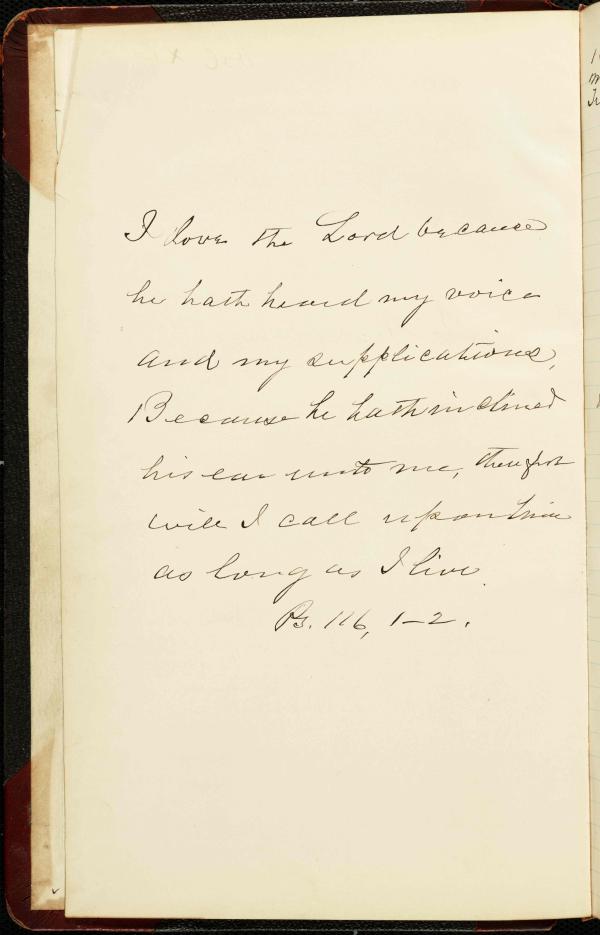 I love the Lord because
he hath heard my voice
and my supplications,
Because he hath inclined
his ear unto me, therefore
will I call upon him
as long as I live.
Ps. 116, 1-2.